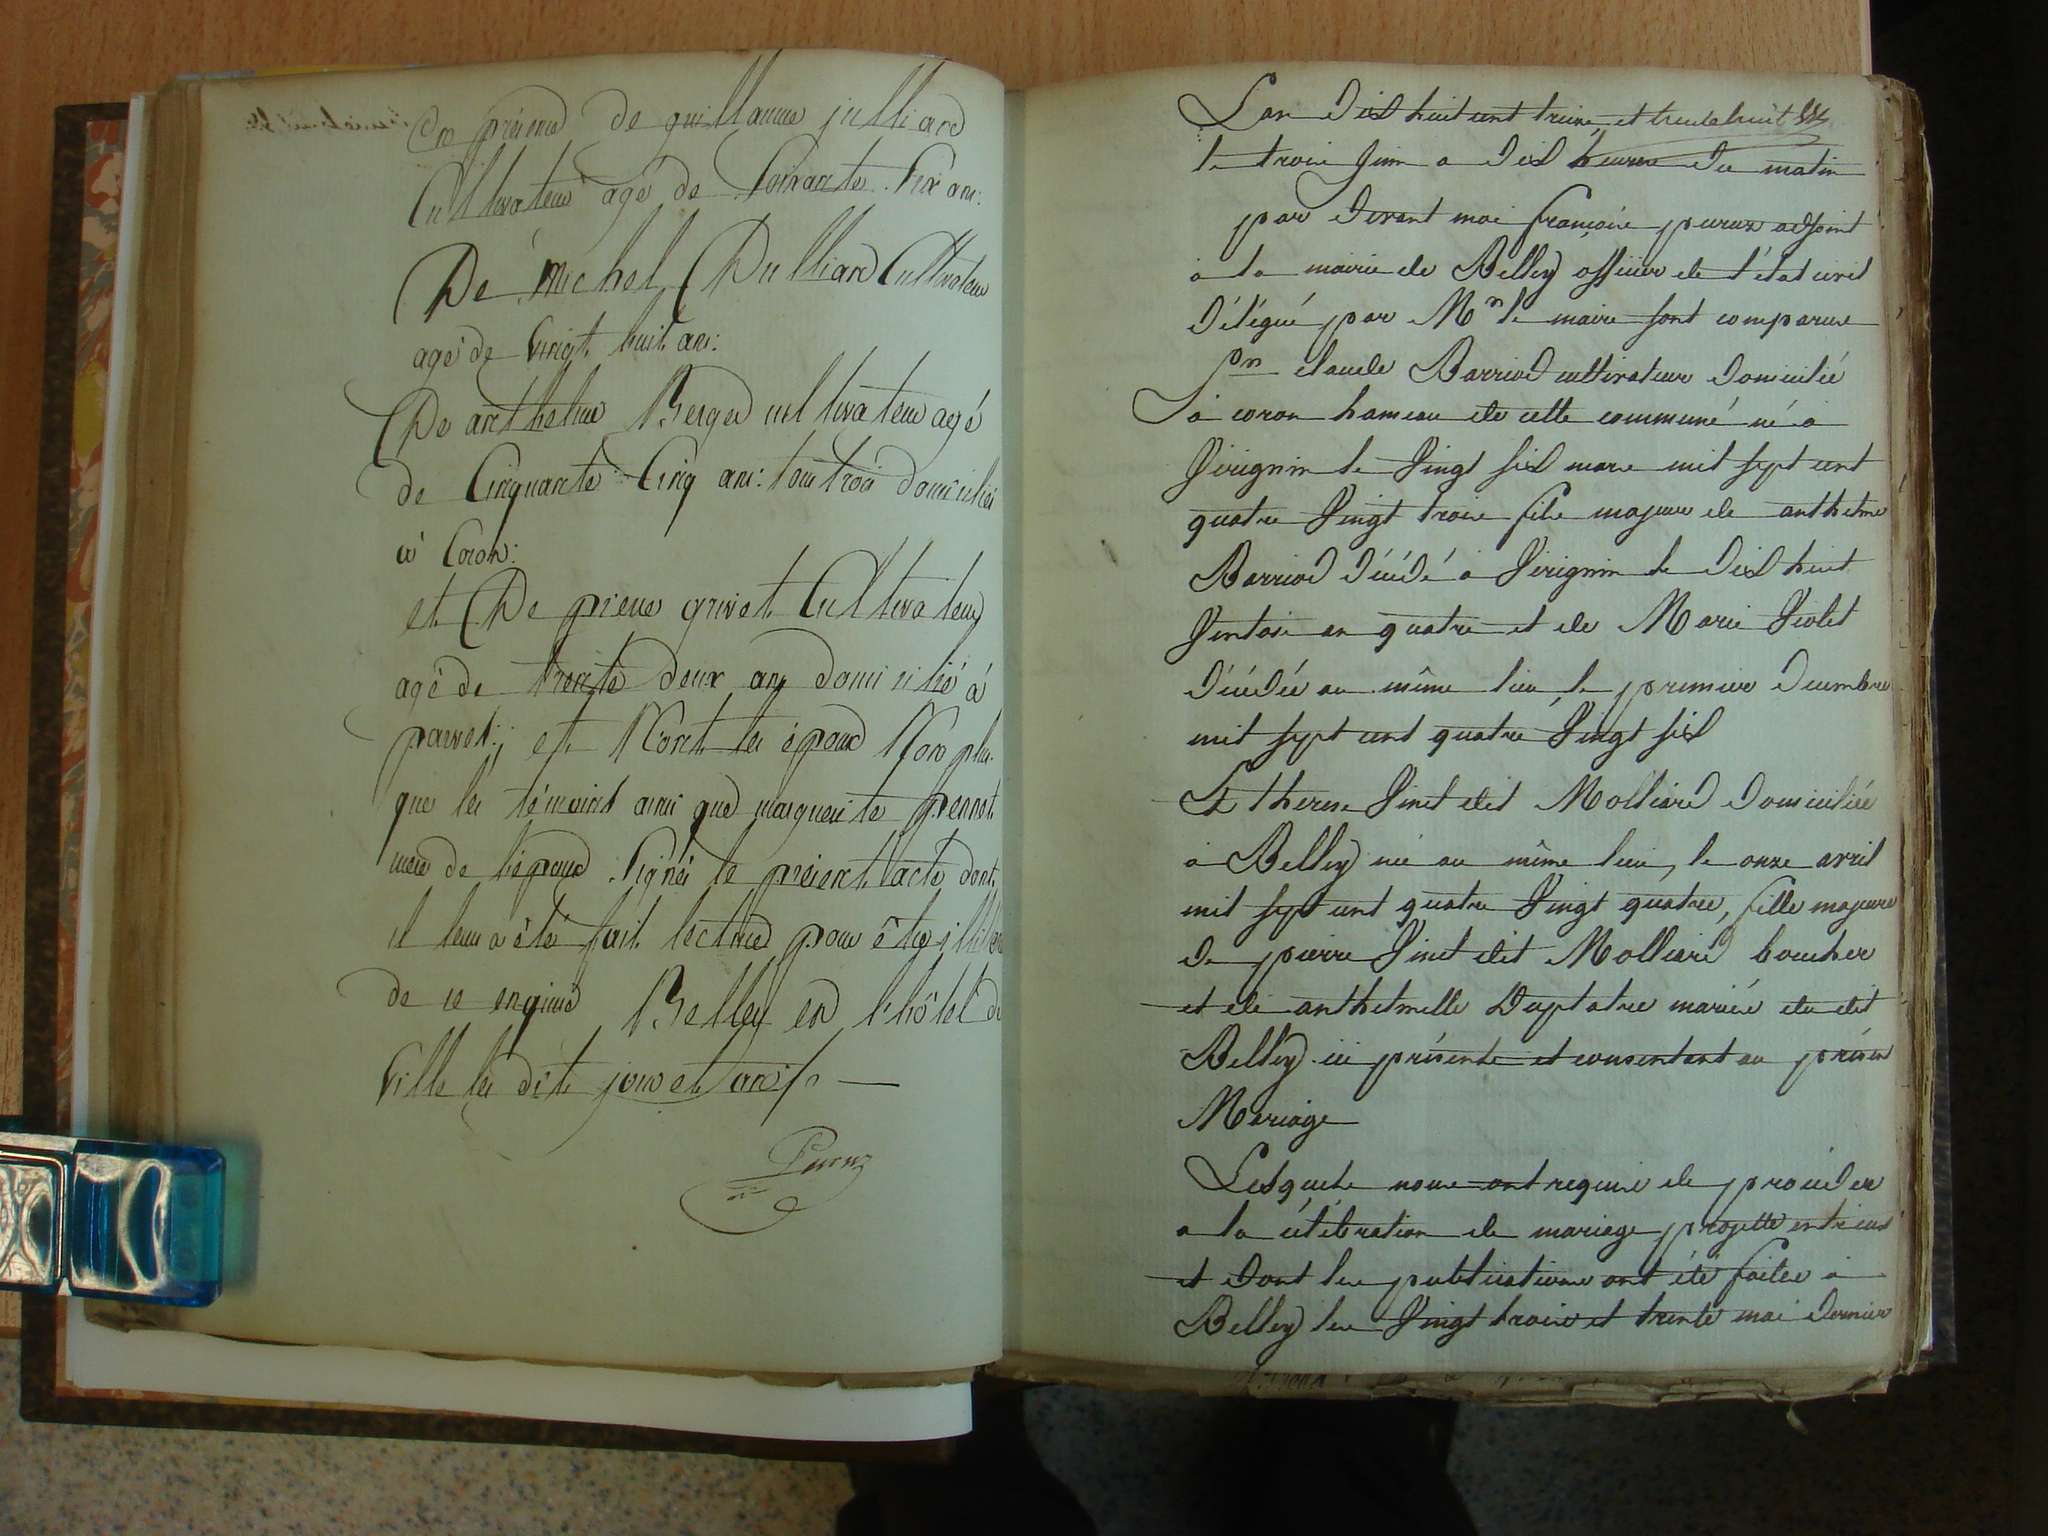 En présence de guillaume julliard
Cultivateur agé de Soixante Six ans:
De Michel Dulliard Cultivateur
agé de Vingt huit ans:
De anthelme Berger cultivateur agé
de Cinquante Cinq ans: tous trois domiciliés
à Coron:
et De pierre grivet Cultivateur
agé de trente deux ans domicilié à
parves; et N'ont les époux Non plus
que les témoins ainsi que marguerite pennet
mère de l'épouse Signés le présent acte dont
il leur a été fait lecture pour être
de ce enquis Belley en l'hôtel de
Ville les dits jour et an
Peroux
L'an Dix huit cent treize, et trente huit
le trois Juin a Dix heures du matin
par Devant moi françois peroux adjoint
à la mairie de Belley officier de l'état civil
Délégué par Mr le maire sont comparus
claude Barriod cultivateur Domicilié
à coron hameau de cette commune né à
Virignin le Vingt six mars mil sept cent
quatre Vingt trois fils majeur de anthelme
Barriod Décédé à Virignin le Dix huit
Ventose an quatre et de Marie Violet
Décédée au même lieu le premier Decembre
mil sept cent quatre Vingt six
Et therese Vinet dit Molliard Domiciliée
à Belley née au même lieu, le onze avril
mil sept cent quatre Vingt quatre, fille majeure
De pierre Vinet dit Molliard boucher
et de anthelmette Duplatre mariés du dit
Belley ici présents et consentant au présen
Mariage
Lesquels nous ont requis de procéder
a la célébration de mariage projetté entr'eux
et Dont les publications ont été faites à
Belley les Vingt trois et trente mai Dernier